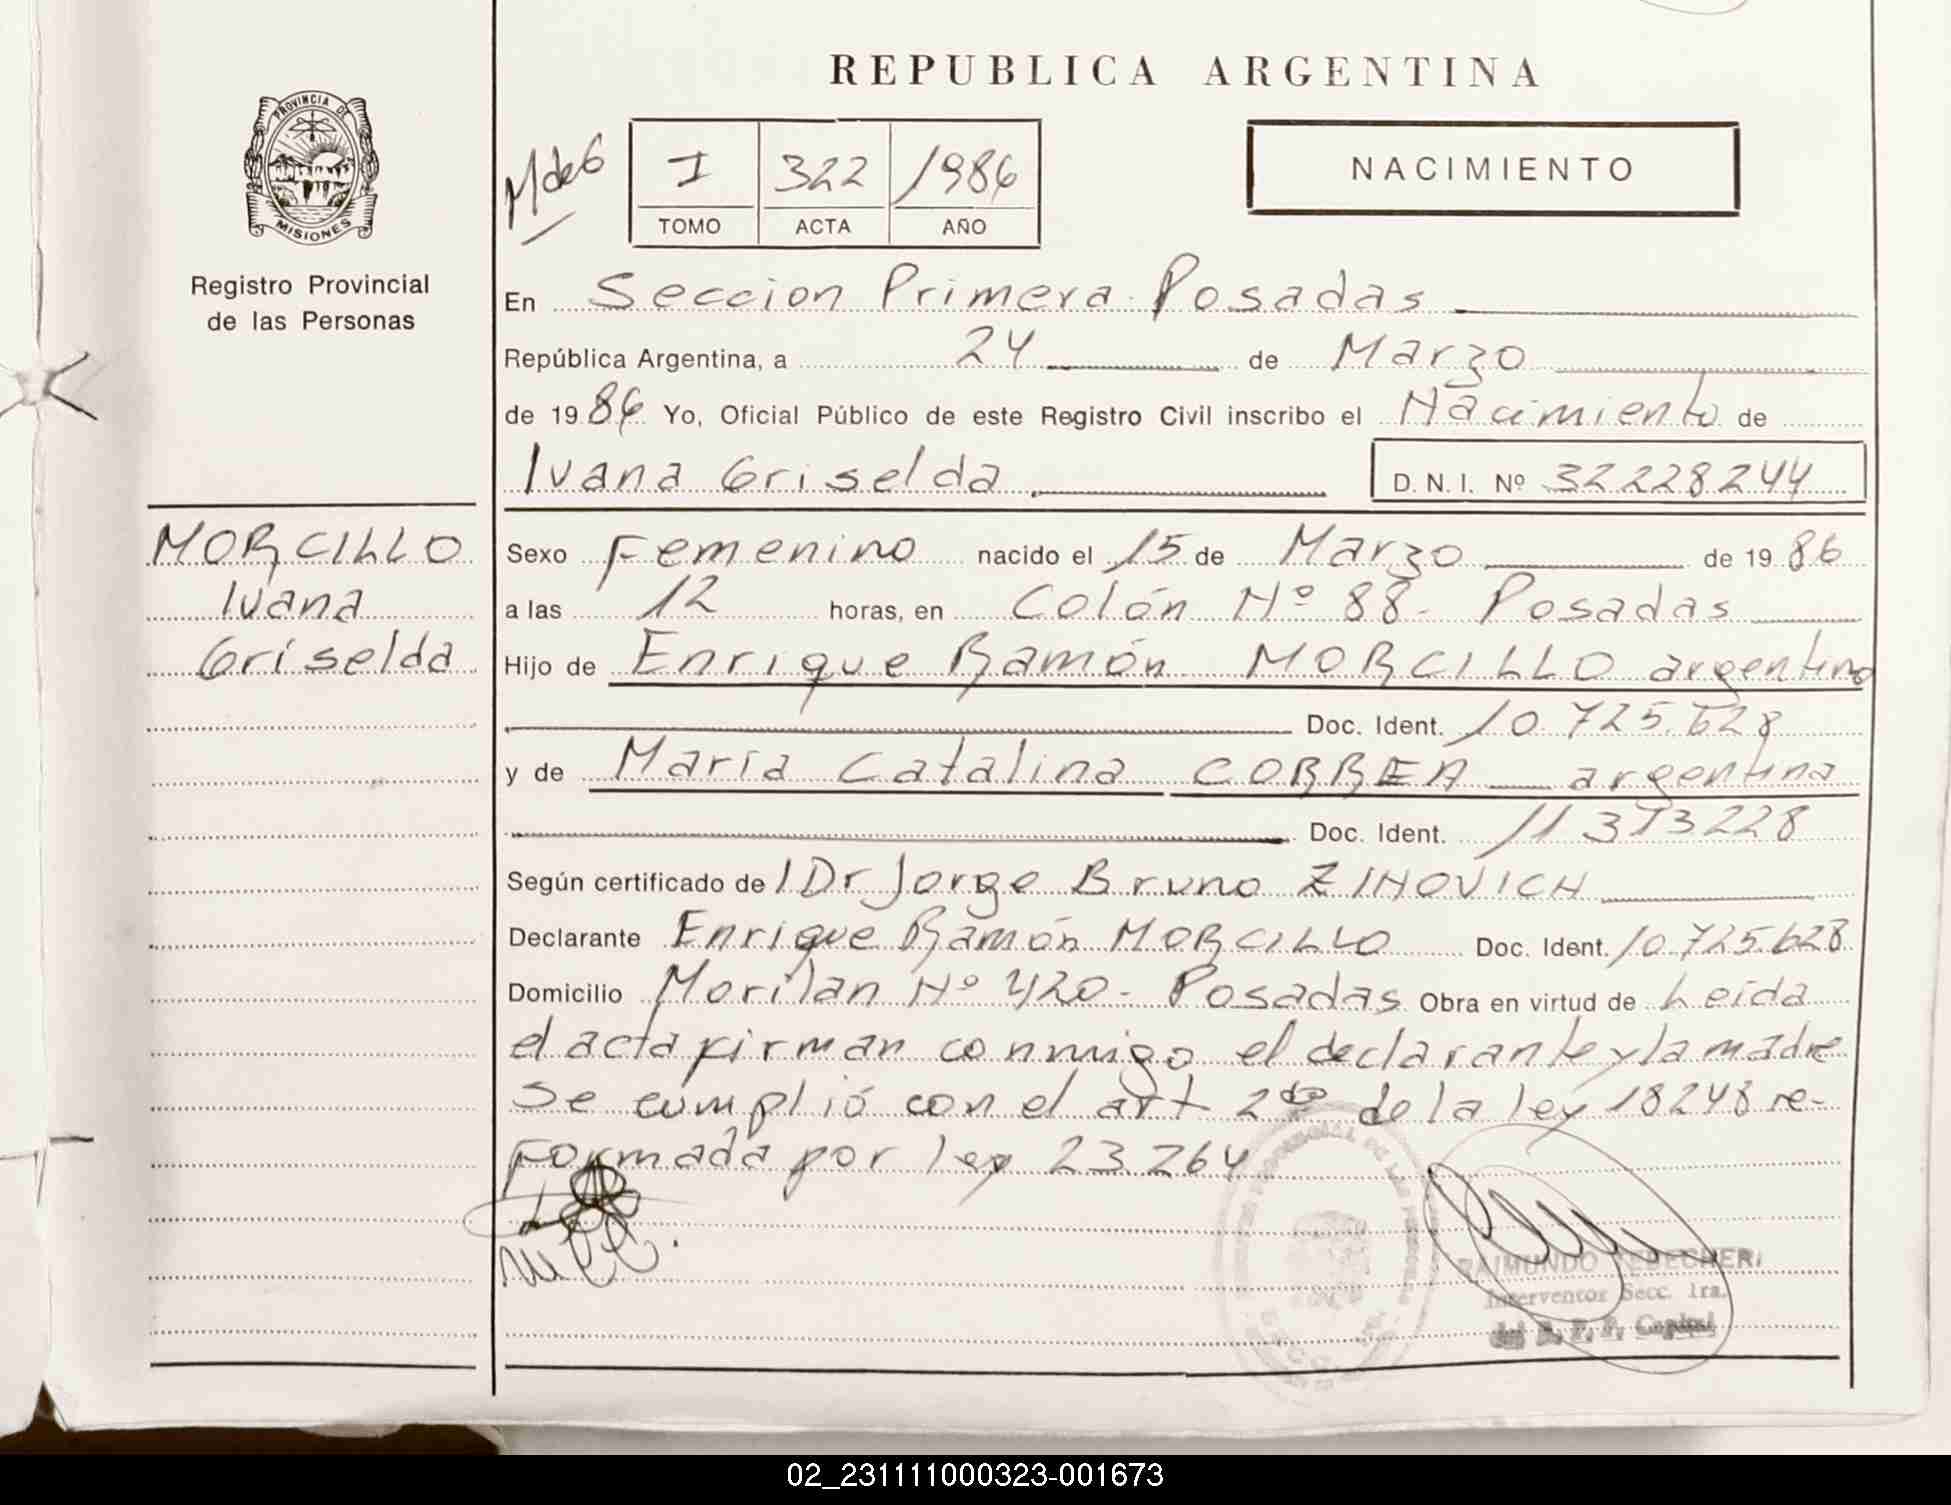 REPUBLICA ARGENTINA
PROVINCIA DE
MISIONES
Registro Provincial
de las Personas
I 322 1986
TOMO ACTA AÑO
NACIMIENTO
En Seccion Primera Posadas
República Argentina, a 24 de Marzo
de 1986 Yo, Oficial Público de este Registro Civil inscribo el Nacimiento de
Ivana Griselda D.N.I. Nº 32228244
MORCILLO
Ivana
Griselda
Sexo Femenino nacido el 15 de Marzo de 1986
a las 12 horas, en Colón Nº 88- Posadas
Hijo de Enrique Ramón MORCILLO argentino
Doc. Ident. 10.725.628
y de María Catalina CORREA argentina
Doc. Ident.
Según certificado de l Dr Jorge Bruno ZINOVICH
Declarante Enrique Ramón MORCILLO Doc. Ident. 10.725.628
Domicilio Nº 420- Posadas Obra en virtud de Leída
el acta firman conmigo el declarante y la madre
Se cumplió con el art 2do de la ley 18248 re-
Formada por ley 23.264
RAIMUNDO
Interventor Secc. 1ra.
del R. P. P. Capital
02_231111000323-001673